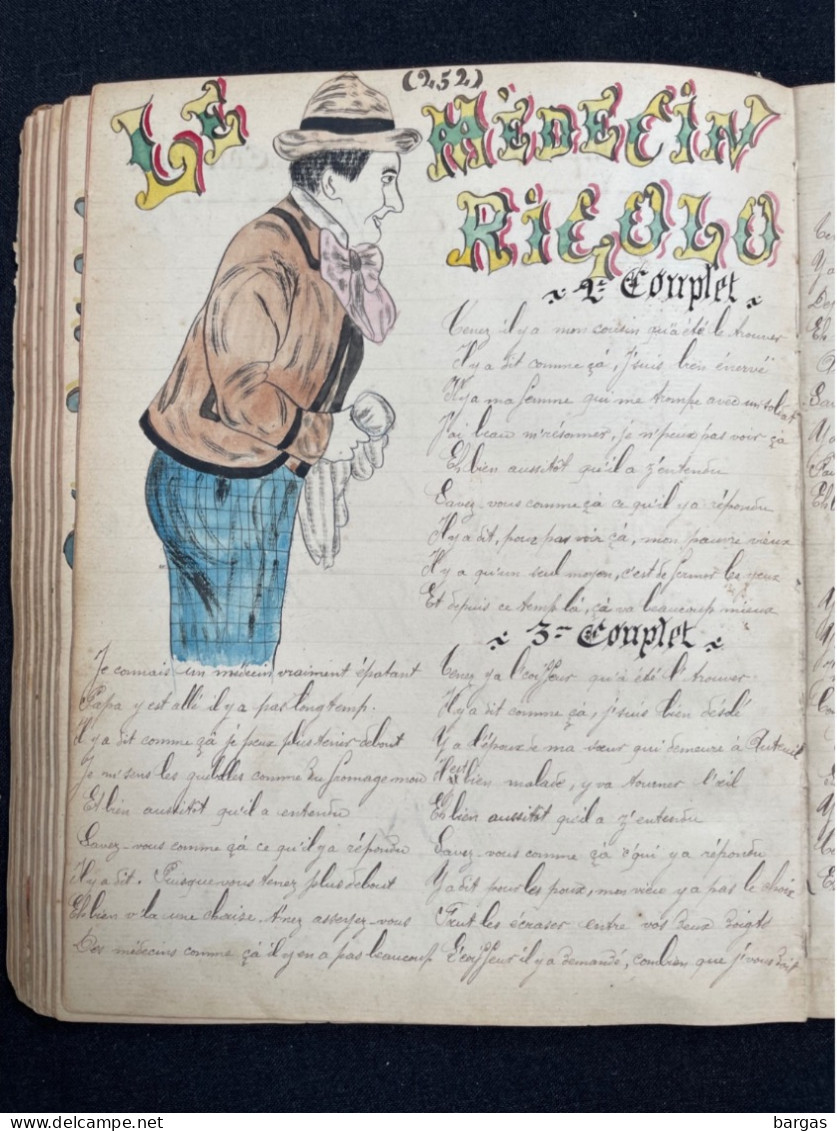 (252)
LE MÉDECIN
RIGOLO
Je connais un médecin vraiment épatant
Papa y est allé il y a pas longtemps.
Il y a dit comme çà je peux plus tenir debout
Je m'sens les guibolles comme du fromage mou
Et bien aussitôt qu'il a entendu
Savez-vous comme çà ce qu'il y a répondu
Il y a dit. Puisque vous tenez plus debout
Et bien v'la une chaise t'nez asseyez-vous
Des médecins comme çà il y en a pas beaucoup
2e Couplet
Tenez il y a mon cousin qu'a été le trouver
Il y a dit comme çà, j'suis bien énervé
Il y a ma femme qui me trompe avec un soldat
J'ai beau m'résonner, je n'peux pas voir çà
Et bien aussitôt qu'il a z'entendu
Savez-vous comme çà ce qu'il y a répondu
Il y a dit, pour pas voir çà, mon pauvre vieux
Il y a qu'un seul moyen, c'est de fermer les yeux
Et depuis ce temp là, çà va beaucoup mieux
3e Couplet
Tenez y a l'coiffeur qu'a été l'trouver
Il y a dit comme çà, j'suis bien désolé
Y a l'époux de ma sœur qui demeure à Auteuil
Il est bien malade, y va tourner l'œil
Et bien aussitôt qu'il a z'entendu
Savez-vous comme çà qui y a répondu
Y a dit pour les poux, mon vieux y a pas le choix
Faut les écraser entre vos deux doigts
L'coiffeur il y a demandé, combien que j'vous dois
bargas